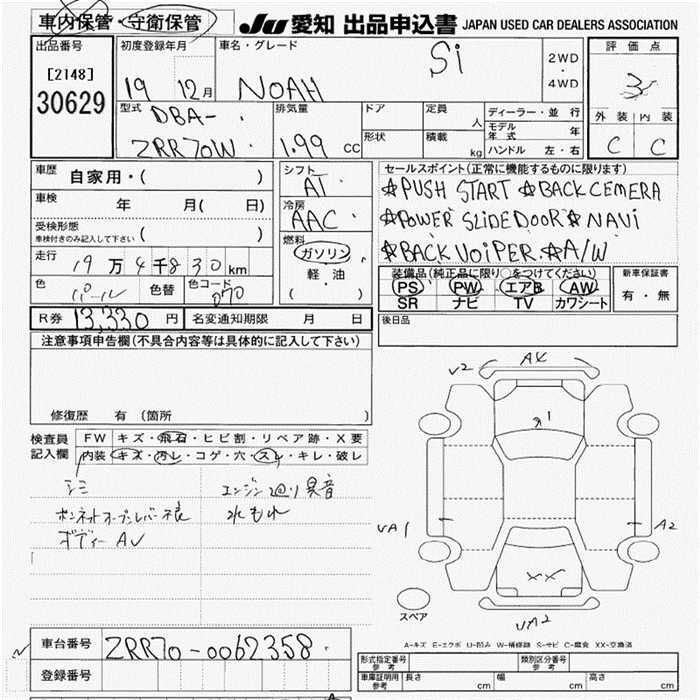 車内保管・守衛保管 JU 愛知 出品申込書 JAPAN USED CAR DEALERS ASSOCIATION
出品番号 初度登録年月 車名・グレード 2WD・4WD 評価点
[2148] 19 12月 NOAH Si 3
30629
型式 排気量 ドア 定員 人 ディーラー・並行 外装 内装
DBA- 形状 積載 kg モデル年式 年 C C
ZRR70W 1.99 CC ハンドル 左・右
車歴 自家用・( ) シフト AT セールスポイント(正常に機能するものに限ります)
車検 年 月( 日) 冷房 AAC ☆PUSH START ☆BACK CEMERA
受検形態 ☆POWER SLIDE DOOR ☆NAVI
車検付きのみ記入して下さい ( ) 燃料 ☆BACK VOIPER ☆A/W
走行 19万4千830km ガソリン 装備品(純正品に限り○をつけてください) 新車保証書
色 パール 色替 色コード 070 軽・油 ( ) PS PW エアB AW 有・無
SR ナビ TV カワシート
R券 13,330円 名変通知期限 月 日 後日品
注意事項申告欄(不具合内容等は具体的に記入して下さい)
修復歴 有(箇所
検査員 FW キズ・飛石・ヒビ割・リペア跡・X要
記入欄 内装 キズ・汚レ・コゲ・穴・スレ・キレ・破レ
シミ エンジン廻り異音
ボンネットオープンレバー不良 水もれ
ボディー AU
V2 A4
1
VA1 A2
XX
VA2
スペア
A-キズ E-エクボ U-凹み W-補修跡 S-サビ C-腐食 XX-交換済
車台番号 ZRR70-0062358 形式指定番号 参考 類別区分番号 参考
登録番号 車庫証明用 参考 長さ cm 幅 cm 高さ cm